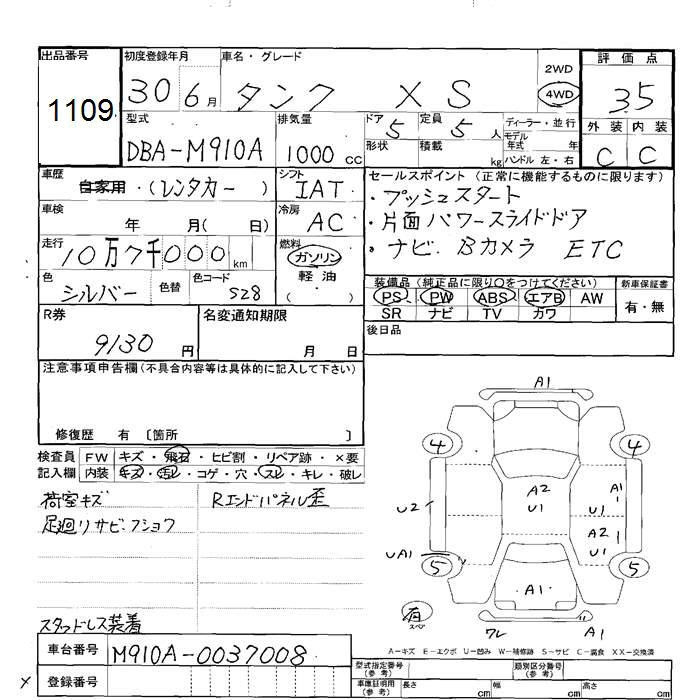 出品番号
1109
初度登録年月
30 6月
車名・グレード
タンク XS
2WD
4WD
評価点
35
外装 内装
C C
型式
DBA-M910A
排気量
1000 cc
ドア
5
定員
5 人
ディーラー・並行
モデル
年式 年
形状
積載
kg
ハンドル 左・右
車歴
自家用・(レンタカー)
シフト
IAT
セールスポイント (正常に機能するものに限ります)
・プッシュスタート
・片面パワースライドドア
・ナビ. Bカメラ ETC
車検
年 月( 日)
冷房
AC
走行
10万7千000 km
燃料
ガソリン
軽油
( )
色
シルバー
色替
色コード
S28
装備品 (純正品に限り〇をつけてください)
PS PW ABS エアB AW
SR ナビ TV カワ
新車保証書
有・無
R券
9130 円
名変通知期限
月 日
後日品
注意事項申告欄(不具合内容等は具体的に記入して下さい)
修復歴 有 〔箇所 〕
検査員
記入欄
FW キズ・飛石・ヒビ割・リペア跡・×要
内装 キズ・汚レ・コゲ・穴・スレ・キレ・破レ
荷室キズ
Rエンドパネル歪
足廻リサビ.フショク
スタッドレス装着
A1
4 4
A2
U1
A1
U1
U2
A2
U1
UA1
5 5
A1
有
スペア
ワレ
A1
A-キズ E-エクボ U-凹み W-補修跡 S-サビ C-腐食 XX-交換済
車台番号
M910A-0037008
登録番号
X
型式指定番号
(参考)
類別区分番号
(参考)
車庫証明用
(参考)
長さ
cm
幅
cm
高さ
cm